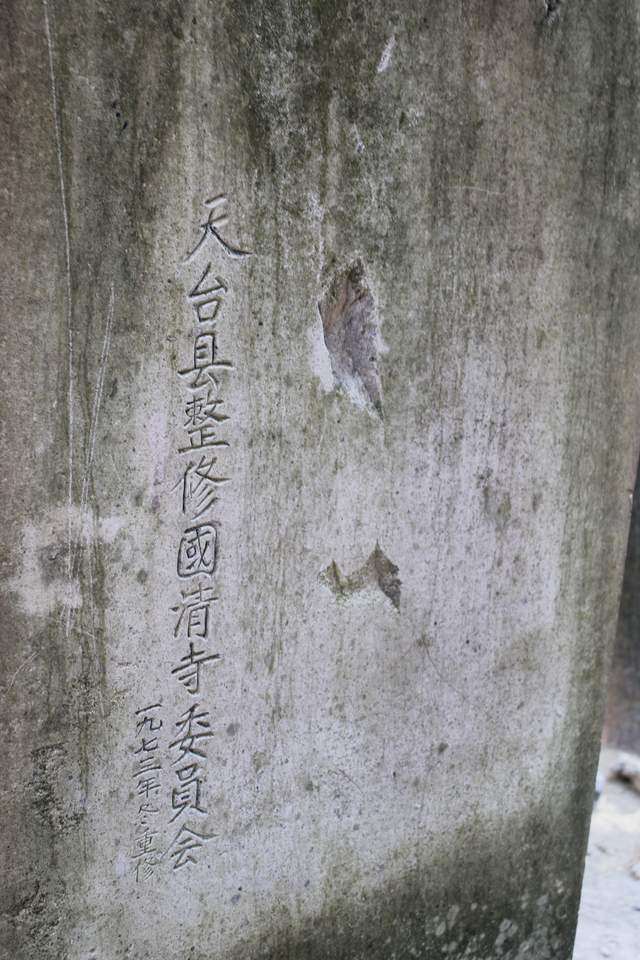 天台县整修國清寺委員会
一九七三年 重修